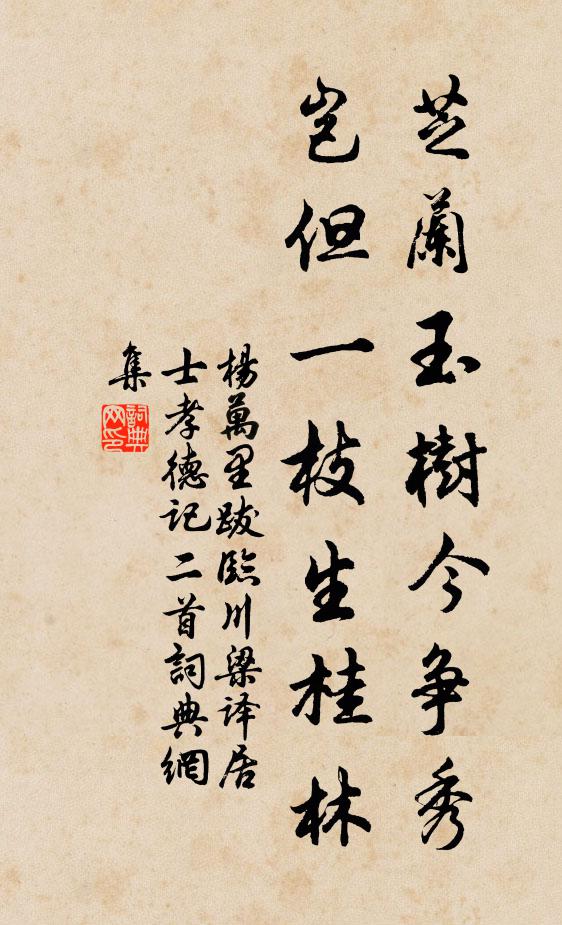 芝蘭玉樹今争秀
岂但一枝生桂林
楊萬里跋臨川梁译居
士孝德记二首詞典網
集
詞典
网印